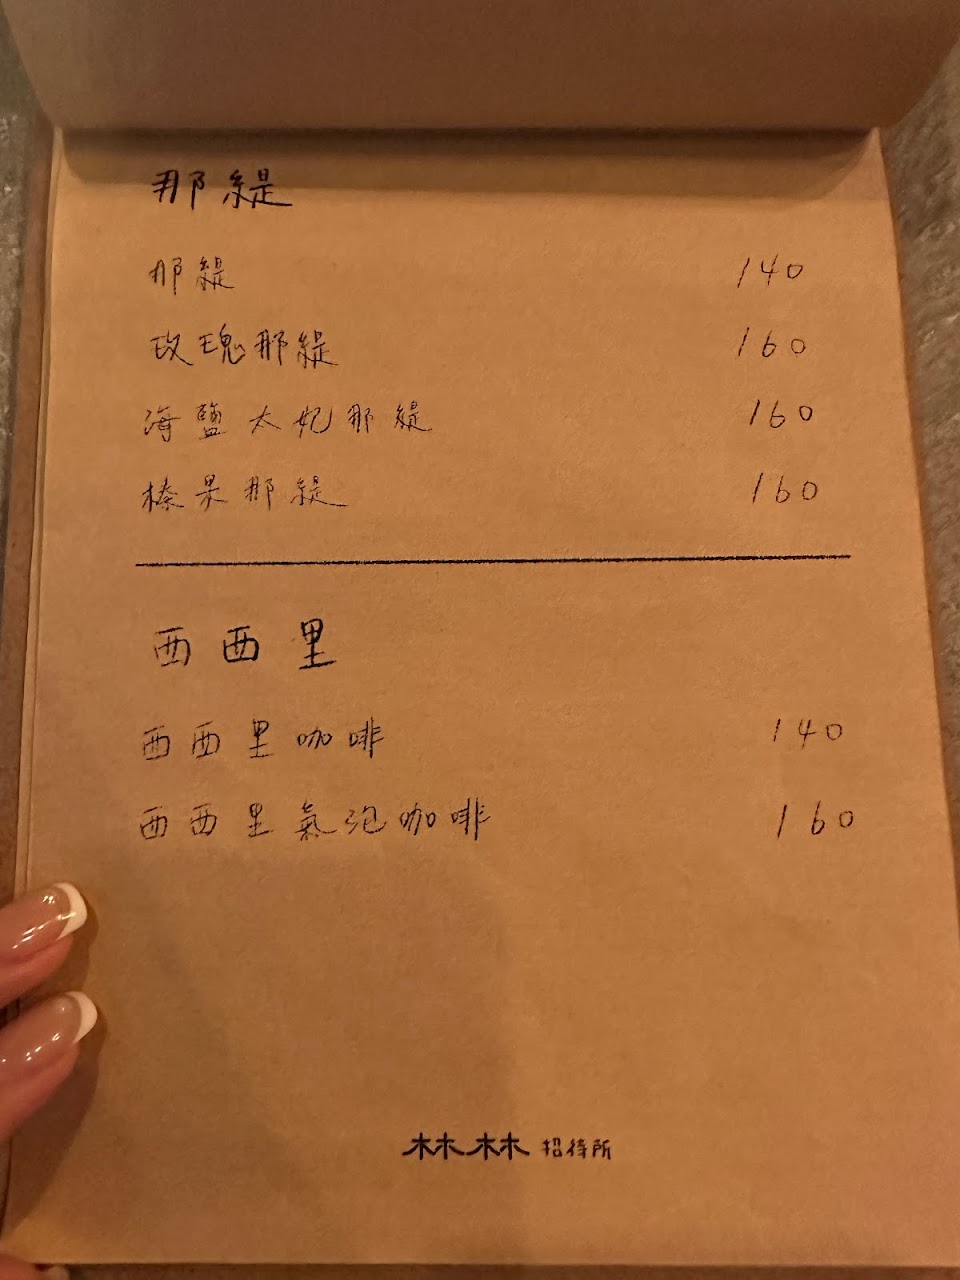 那緹
那緹 140
玫瑰那緹 160
海鹽太妃那緹 160
榛果那緹 160
西西里
西西里咖啡 140
西西里氣泡咖啡 160
林林 招待所